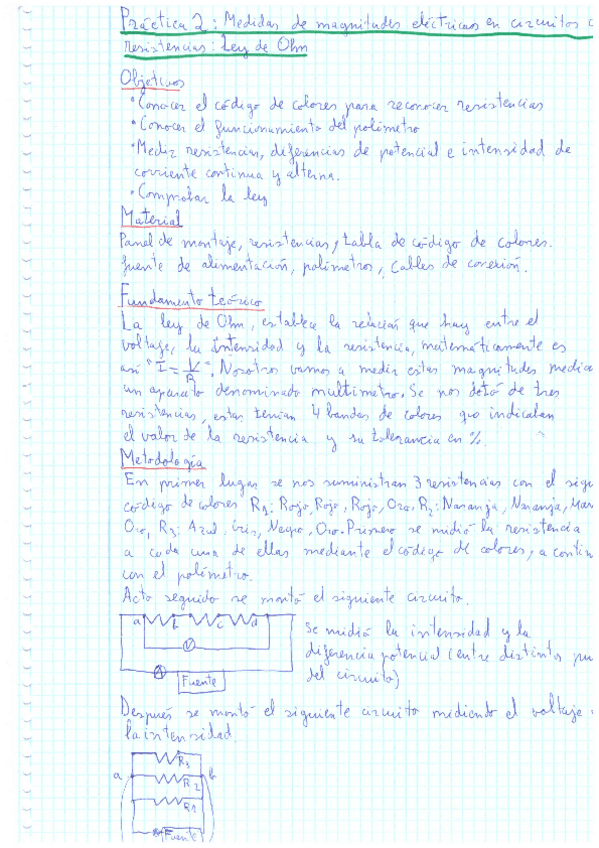 Práctica 2: Medidas de magnitudes eléctricas en circuitos c
resistencias: Ley de Ohm
Objetivos
• Conocer el código de colores para reconocer resistencias
• Conocer el funcionamiento del polímetro
• Medir resistencias, diferencias de potencial e intensidad de
corriente continua y alterna.
• Comprobar la ley
Material
Panel de montaje, resistencias, tabla de código de colores.
fuente de alimentación, polímetros, Cables de conexión.
Fundamento teórico
La ley de Ohm, establece la relación que hay entre el
voltaje, la intensidad y la resistencia, matemáticamente es
así "I = V/R". Nosotros vamos a medir estas magnitudes media
un aparato denominado multímetro. Se nos dotó de tres
resistencias, estas tenían 4 bandas de colores que indicaban
el valor de la resistencia y su tolerancia en %.
Metodología
En primer lugar se nos suministran 3 resistencias con el sigu
código de colores R1: Rojo, Rojo, Rojo, Oro, R2: Naranja, Naranja, Mar
Oro, R3: Azul, Gris, Negro, Oro. Primero se midió la resistencia
a cada una de ellas mediante el código de colores, a contin
con el polímetro.
Acto seguido se montó el siguiente circuito.
a b c d
V
A
Fuente
Se midió la intensidad y la
diferencia potencial (entre distintos pu
del circuito)
Después se montó el siguiente circuito midiendo el voltaje
la intensidad.
R3
a R2 b
R1
Fuente